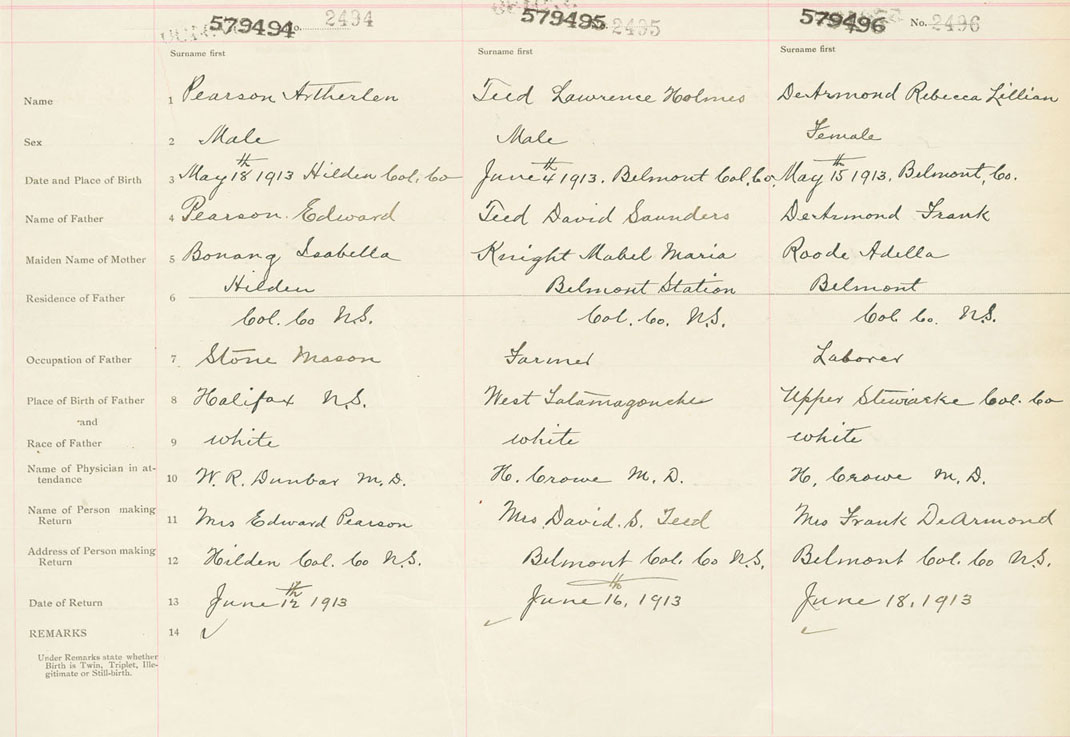 579494 No. 2494 579495 No. 2495 579496 No. 2496
Surname first Surname first Surname first
Name 1 Pearson Artherlen Teed Lawrence Holmes DeArmond Rebecca Lillian
Sex 2 Male Male Female
Date and Place of Birth 3 May 18th 1913 Hilden Col. Co June 4th 1913. Belmont Col. Co. May 15th 1913, Belmont, Co.
Name of Father 4 Pearson Edward Teed David Saunders DeArmond Frank
Maiden Name of Mother 5 Bonang Isabella Knight Mabel Maria Roode Adella
Residence of Father 6 Hilden Belmont Station Belmont
Col. Co N.S. Col. Co. N.S. Col Co. N.S.
Occupation of Father 7 Stone Mason Farmer Laborer
Place of Birth of Father 8 Halifax N.S. West Tatamagouche Upper Stewiacke Col. Co
and
Race of Father 9 white white white
Name of Physician in at-
tendance 10 W. R. Dunbar M.D. H. Crowe M.D. H. Crowe M.D.
Name of Person making
Return 11 Mrs Edward Pearson Mrs David. S. Teed Mrs Frank DeArmond
Address of Person making
Return 12 Hilden Col. Co N.S. Belmont Col. Co N.S. Belmont Col. Co N.S.
Date of Return 13 June 12th 1913 June 16th, 1913 June 18, 1913
REMARKS 14
Under Remarks state whether
Birth is Twin, Triplet, Ille-
gitimate or Still-birth.